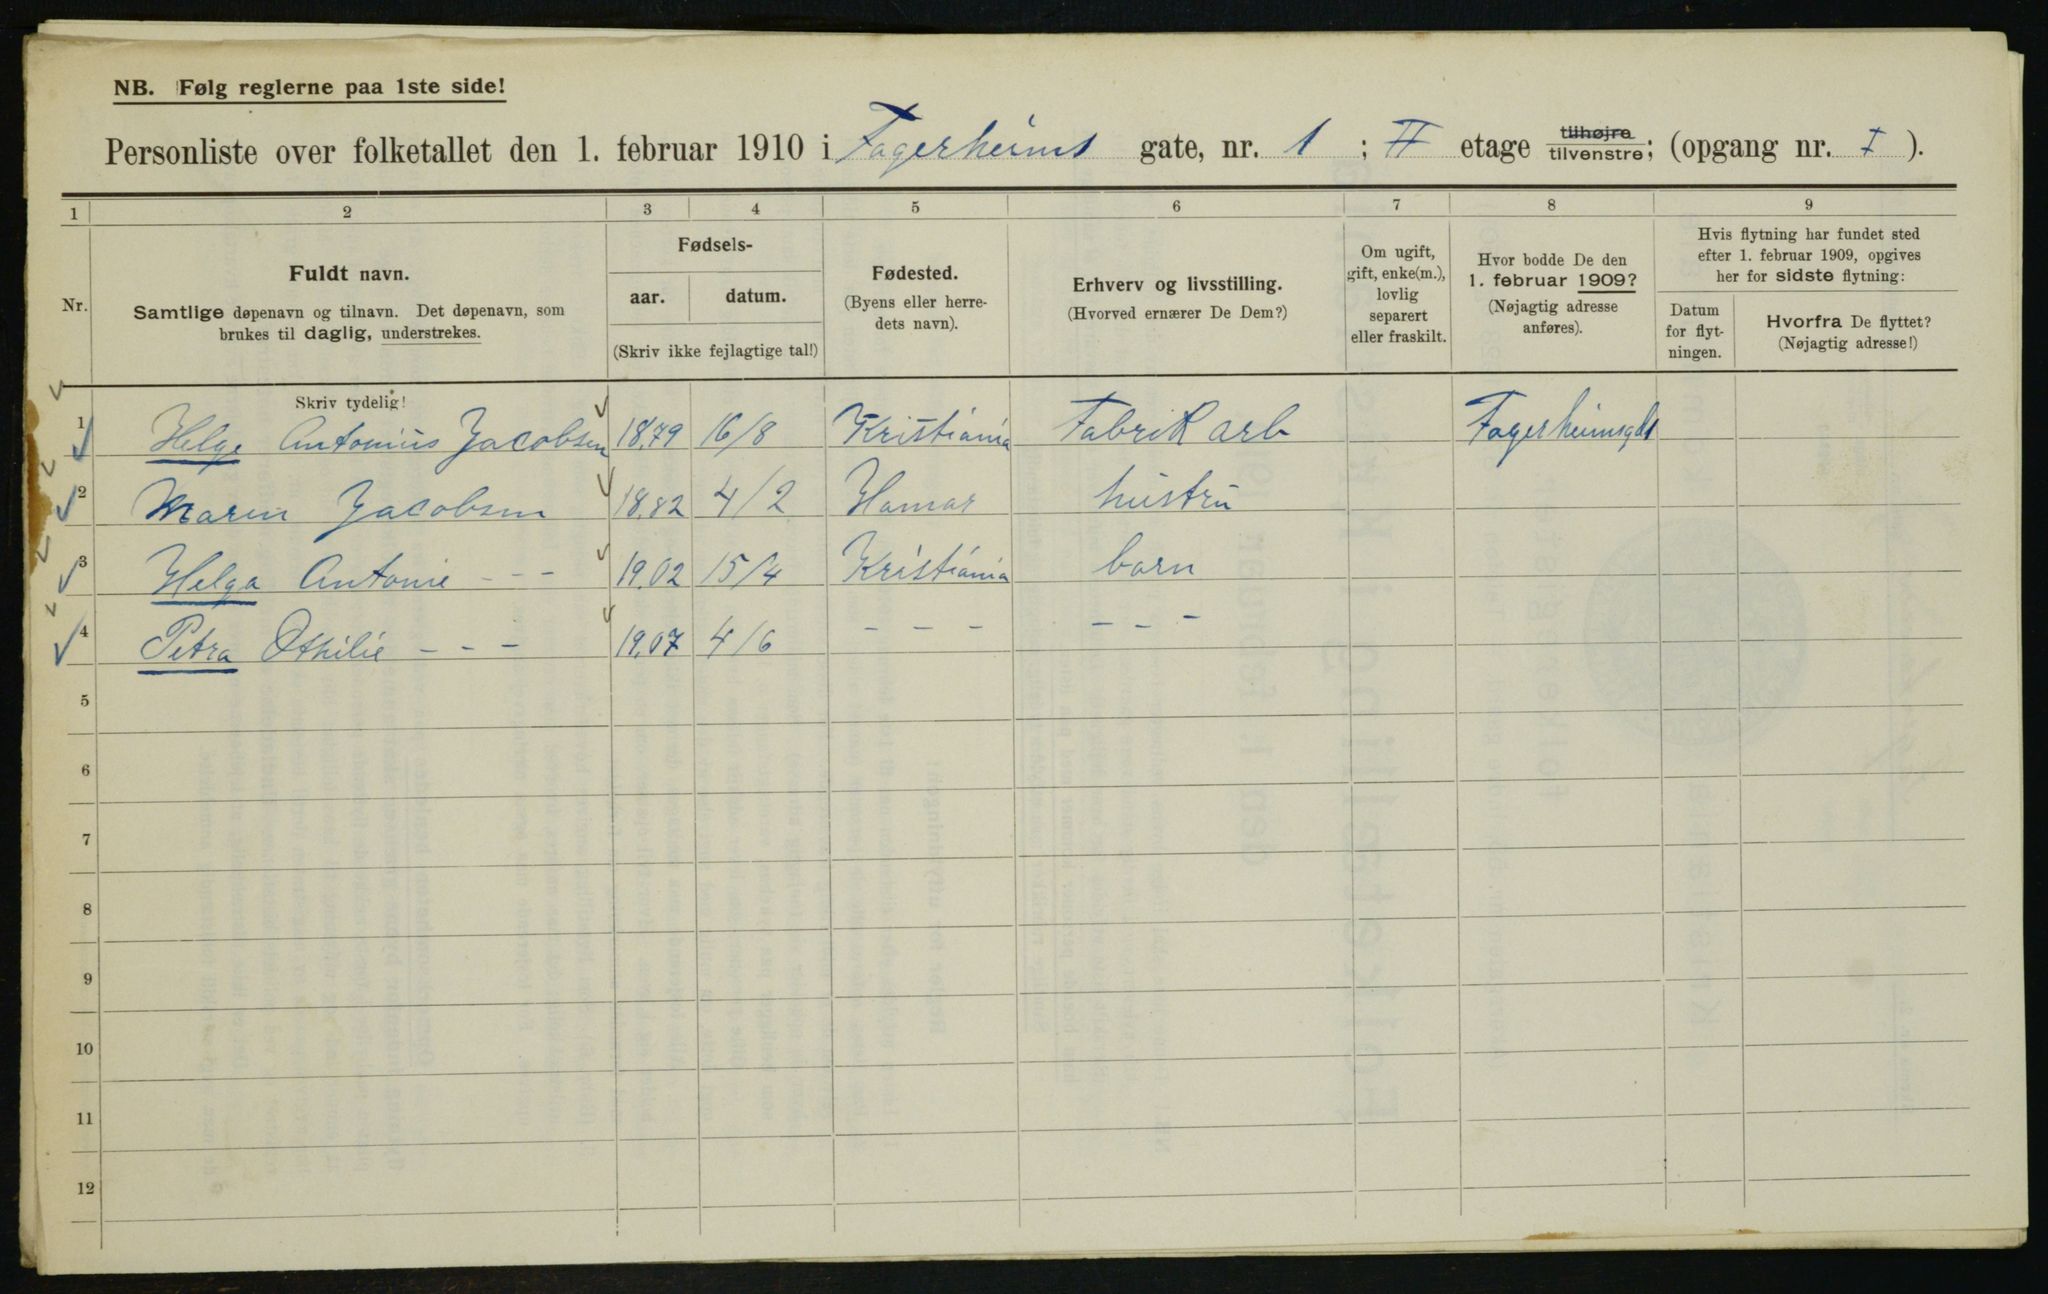 NB. Følg reglerne paa 1ste side!
Personliste over folketallet den 1. februar 1910 i Fagerheims gate, nr. 1 ; II etage tilhøjre tilvenstre; (opgang nr. I ).
1 2 3 4 5 6 7 8 9
Nr.
Fuldt navn.
Samtlige døpenavn og tilnavn. Det døpenavn, som
brukes til daglig, understrekes.
Fødsels-
aar. datum.
(Skriv ikke fejlagtige tal!)
Fødested.
(Byens eller herre-
dets navn).
Erhverv og livsstilling.
(Hvorved ernærer De Dem?)
Om ugift,
gift, enke(m.),
lovlig
separert
eller fraskilt.
Hvor bodde De den
1. februar 1909?
(Nøjagtig adresse
anføres).
Hvis flytning har fundet sted
efter 1. februar 1909, opgives
her for sidste flytning:
Datum
for flyt-
ningen.
Hvorfra De flyttet?
(Nøjagtig adresse!)
Skriv tydelig!
1 Helge Antonius Jacobsen 18,79 16/8 Kristiania Fabrik arb Fagerheimsgd 1
2 Maren Jacobsen 18,82 4/2 Hamar hustru
3 Helga Antonie - - - 19,02 15/4 Kristiania barn
4 Petra Othilie - - - 19,07 4/6 - - - - - -
5
6
7
8
9
10
11
12